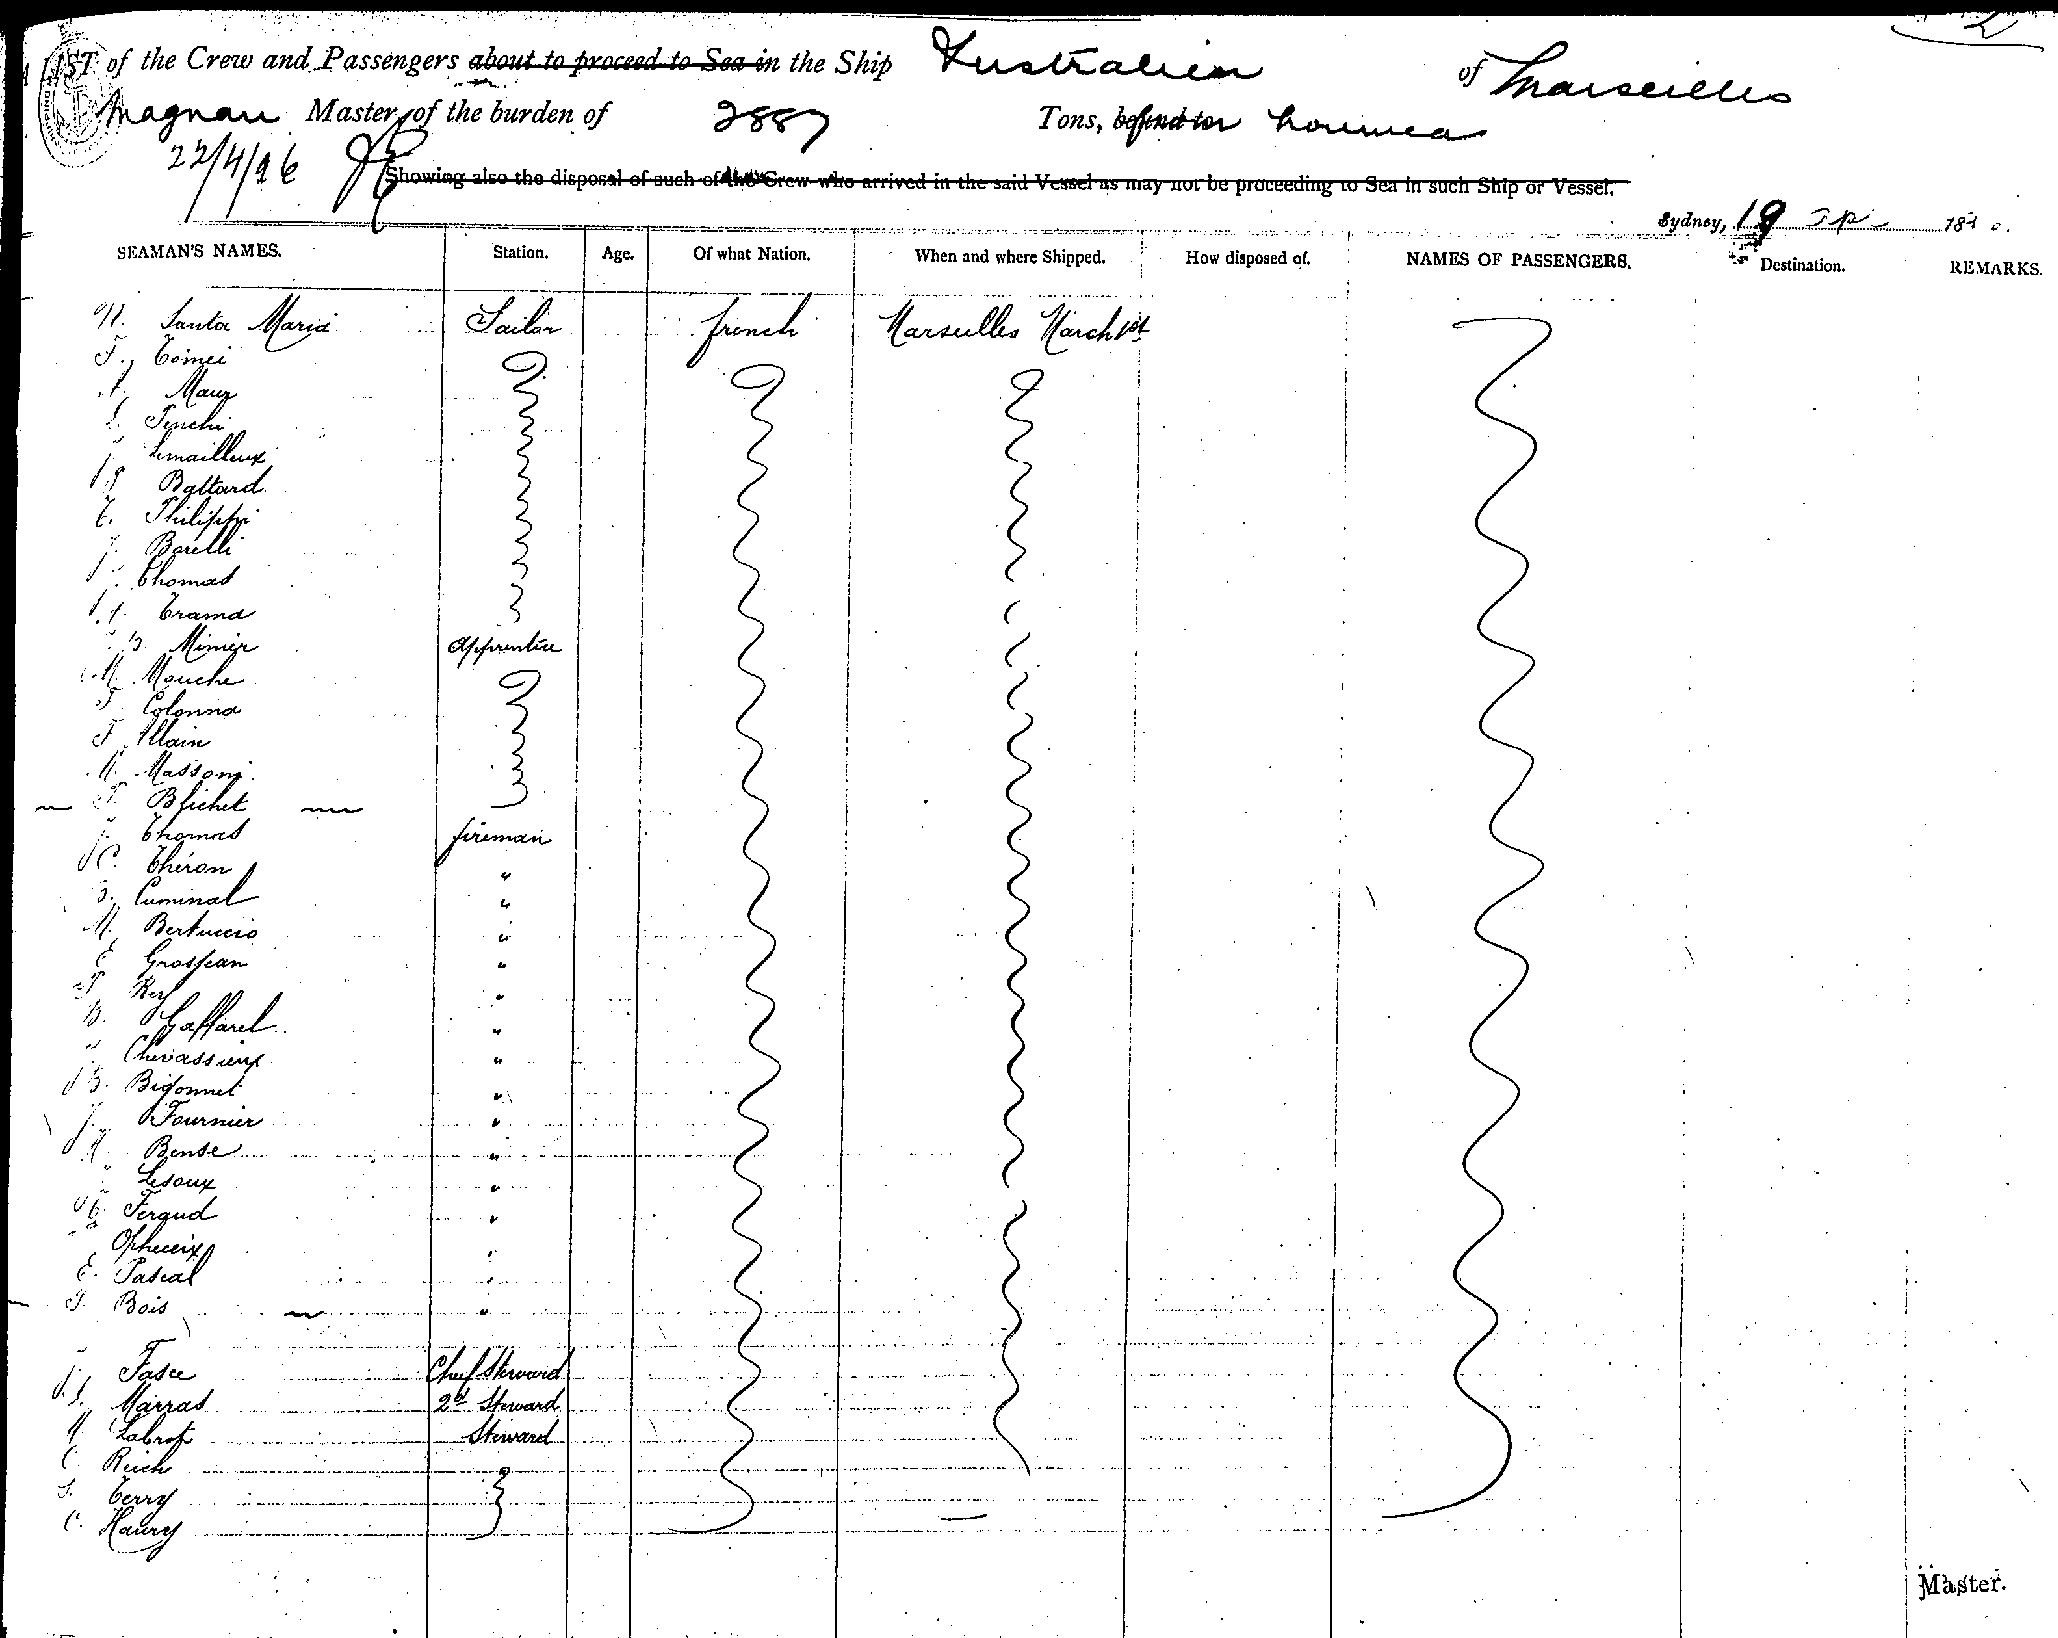 LIST of the Crew and Passengers about to proceed to Sea in the Ship Australien of Marseilles
Magnan Master, of the burden of 2887 Tons, bound for Noumea
22/4/96
Showing also the disposal of such of the Crew who arrived in the said Vessel as may not be proceeding to Sea in such Ship or Vessel.
Sydney, 19 189
SEAMAN'S NAMES. Station. Age. Of what Nation. When and where Shipped. How disposed of. NAMES OF PASSENGERS. Destination. REMARKS.
Santa Maria Sailor french Marseilles March 1st
F. Tomei
Maur
Tenchi
Lemailleux
Battard
T. Philippi
J. Borelli
Thomas
Trama
Minier Apprentice
M. Mouche
Colonna
F. Allain
M. Massoni
Blichet
J. Thomas fireman
C. Théron "
Cuminal "
M. Bertuccio "
E. Grosjean "
Rey "
B. Gaffarel "
Chevassieux "
B. Bigonnet "
J. Fournier "
Bense "
Ledoux "
Feraud "
"
E. Pascal "
Bois "
J. Fasce Chief Steward
Marras 2d Steward
Steward
C. Reich
Terry
C. Haury
Master.